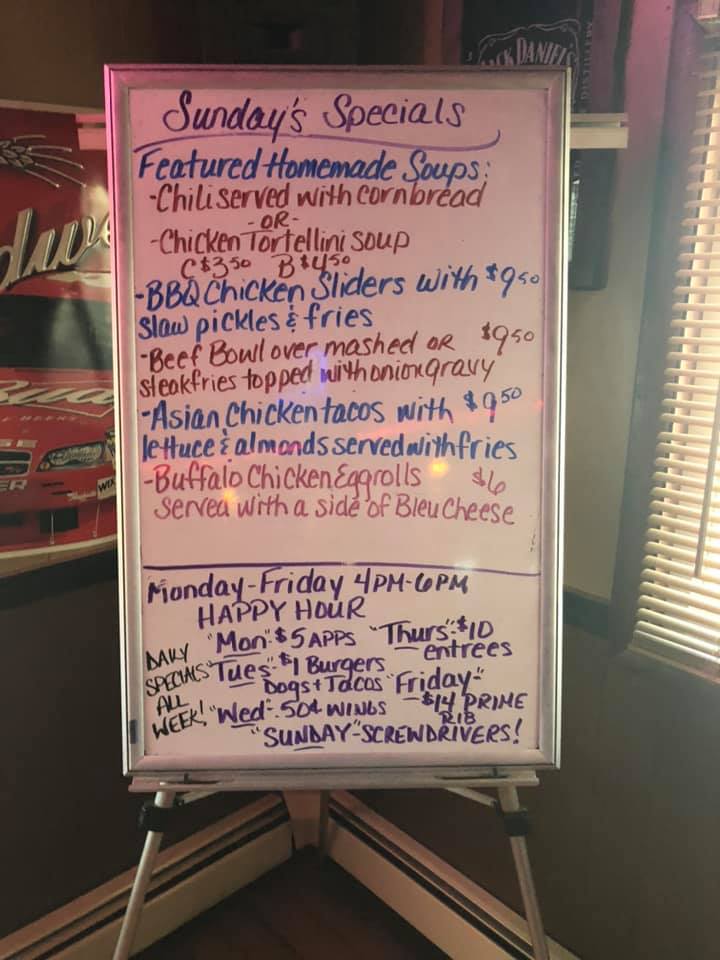 JACK DANIEL'S
Sunday's Specials
Featured Homemade Soups:
-Chili served with cornbread
-OR-
-Chicken Tortellini soup
C $3.50 B $4.50
-BBQ Chicken Sliders with $9.50
slaw pickles & fries
-Beef Bowl over mashed OR $9.50
steakfries topped with onion gravy
-Asian Chicken tacos with $9.50
lettuce & almonds served with fries
-Buffalo Chicken Eggrolls $6
served with a side of Bleu Cheese
Monday-Friday 4PM-6PM
HAPPY HOUR
DAILY SPECIALS ALL WEEK!
"Mon" $5 APPS
"Tues" $1 Burgers
Dogs + Tacos
"Wed" .50¢ WINGS
"Thurs" $10
entrees
"Friday"
-$14 PRIME
RIB
"SUNDAY"-SCREWDRIVERS!